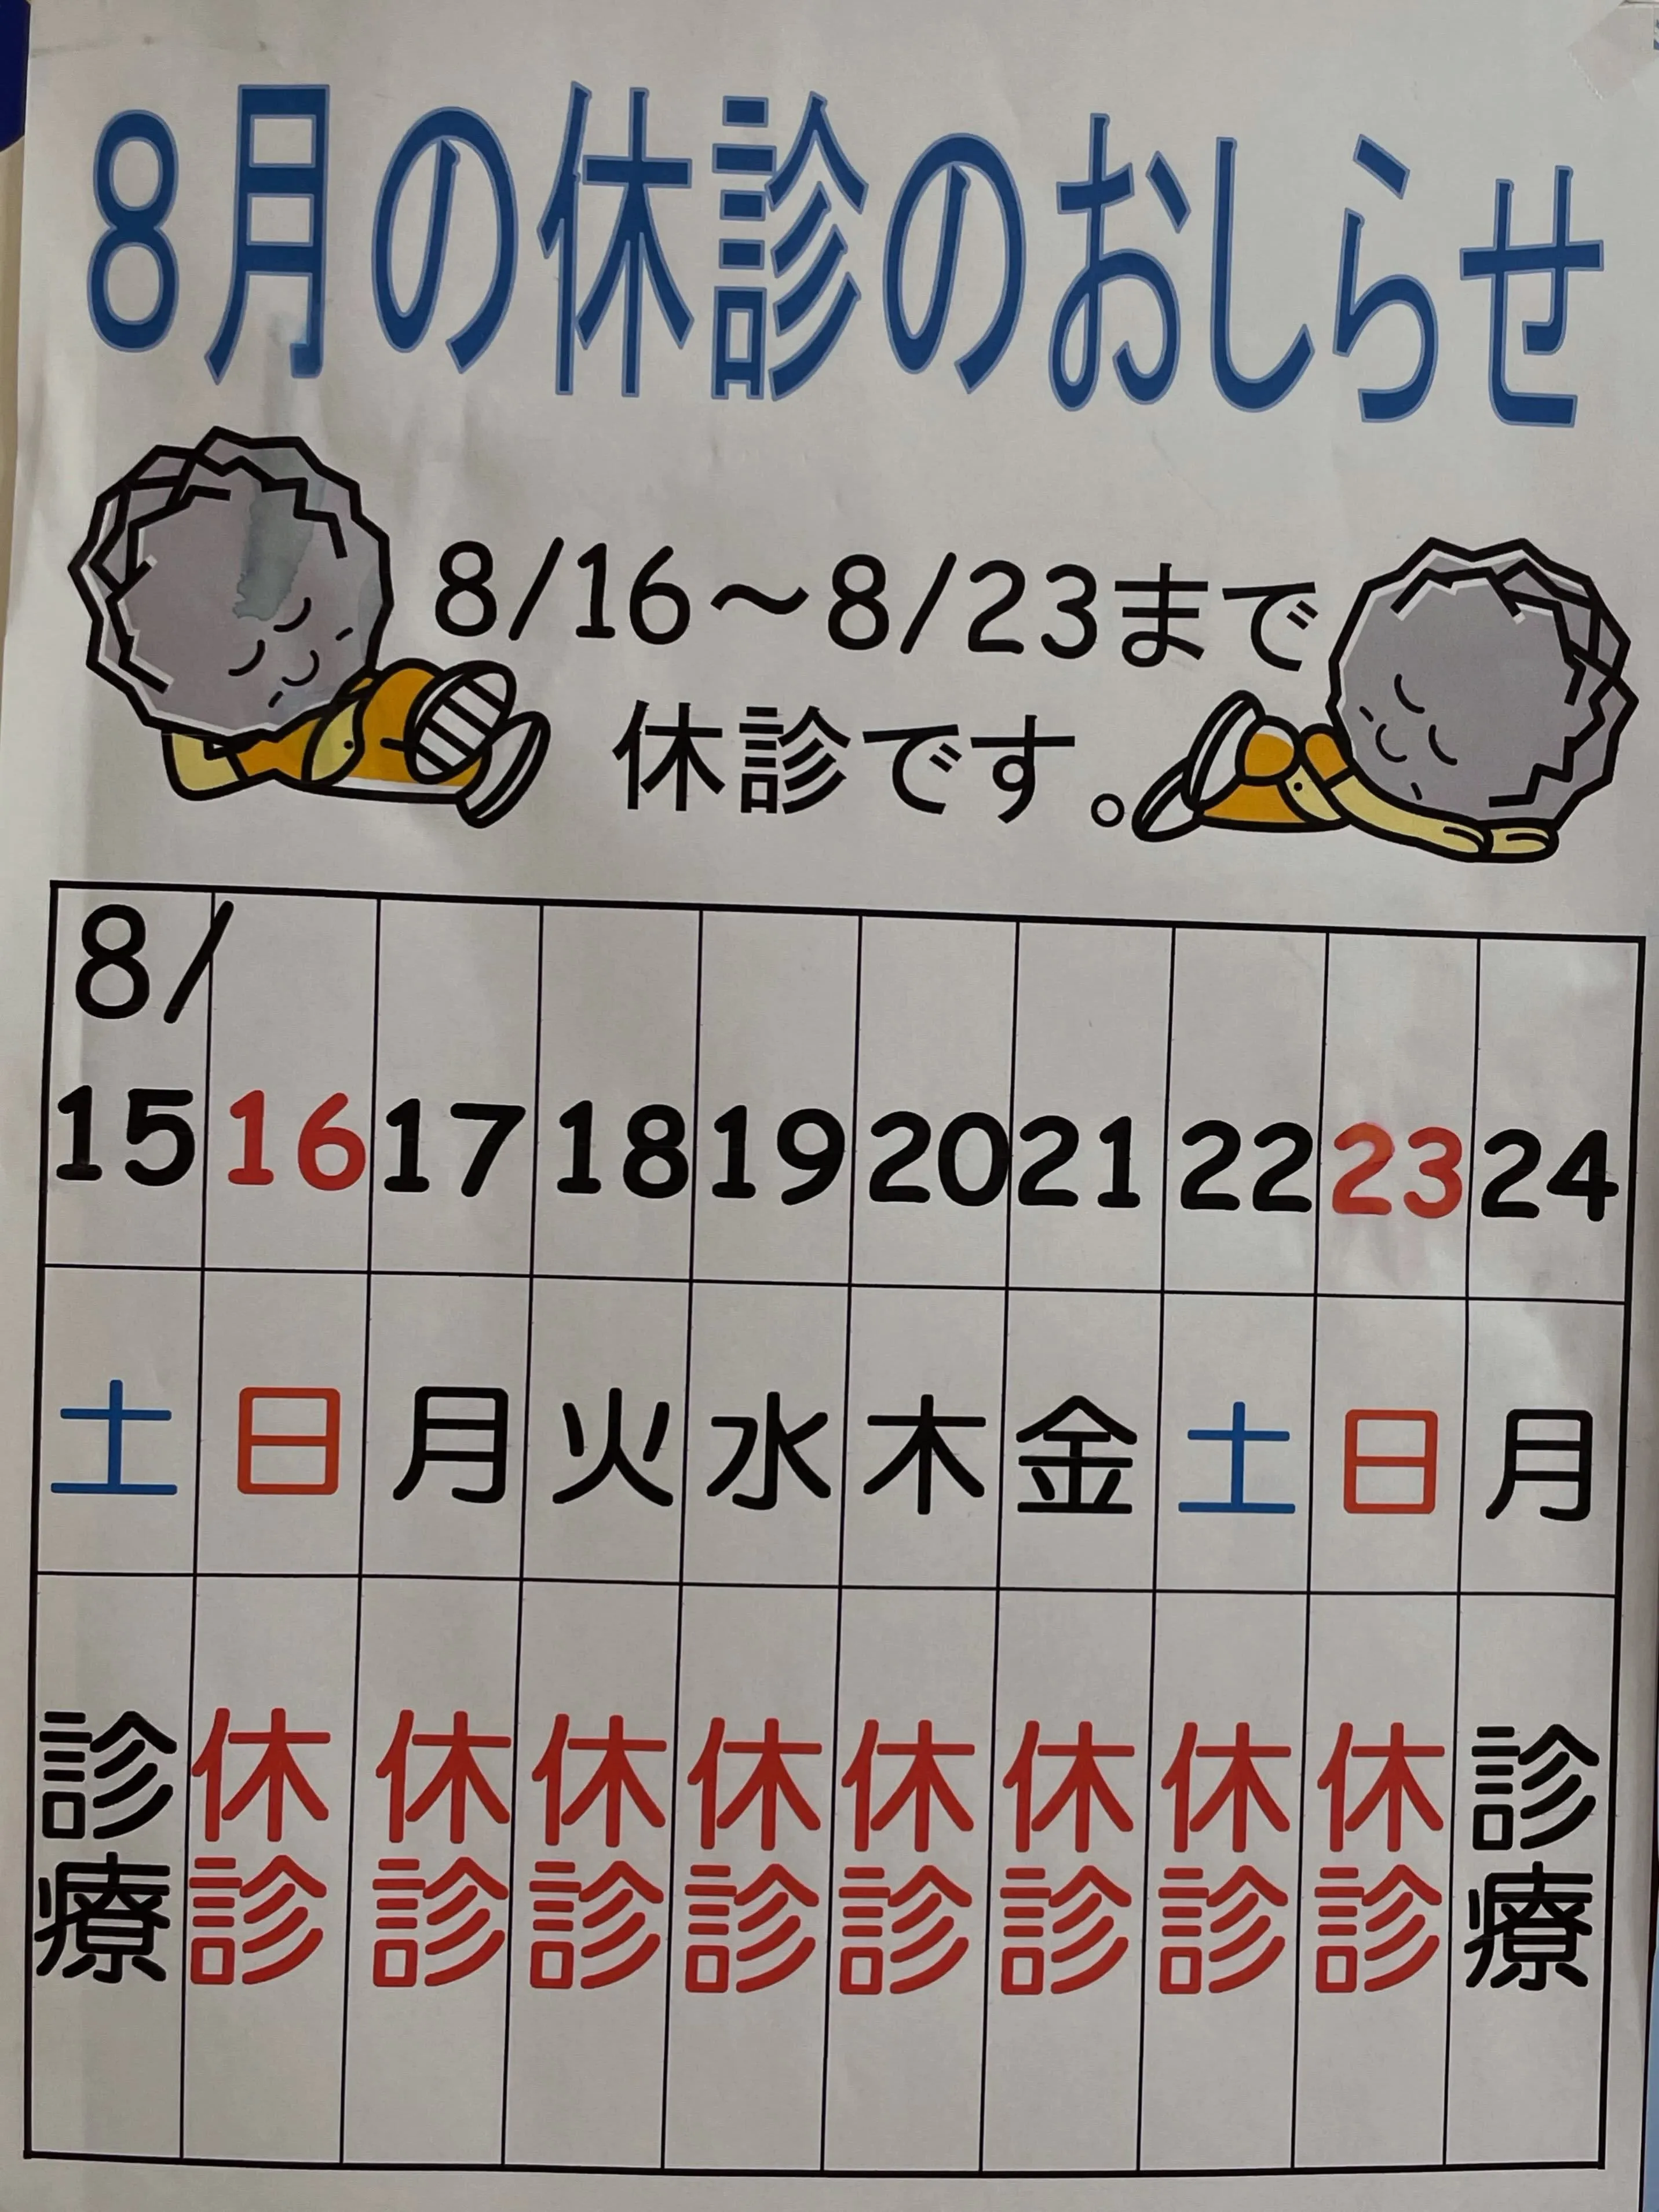 8月の休診のおしらせ
8/16～8/23まで
休診です。
8/
15 16 17 18 19 20 21 22 23 24
土 日 月 火 水 木 金 土 日 月
診療 休診 休診 休診 休診 休診 休診 休診 休診 診療